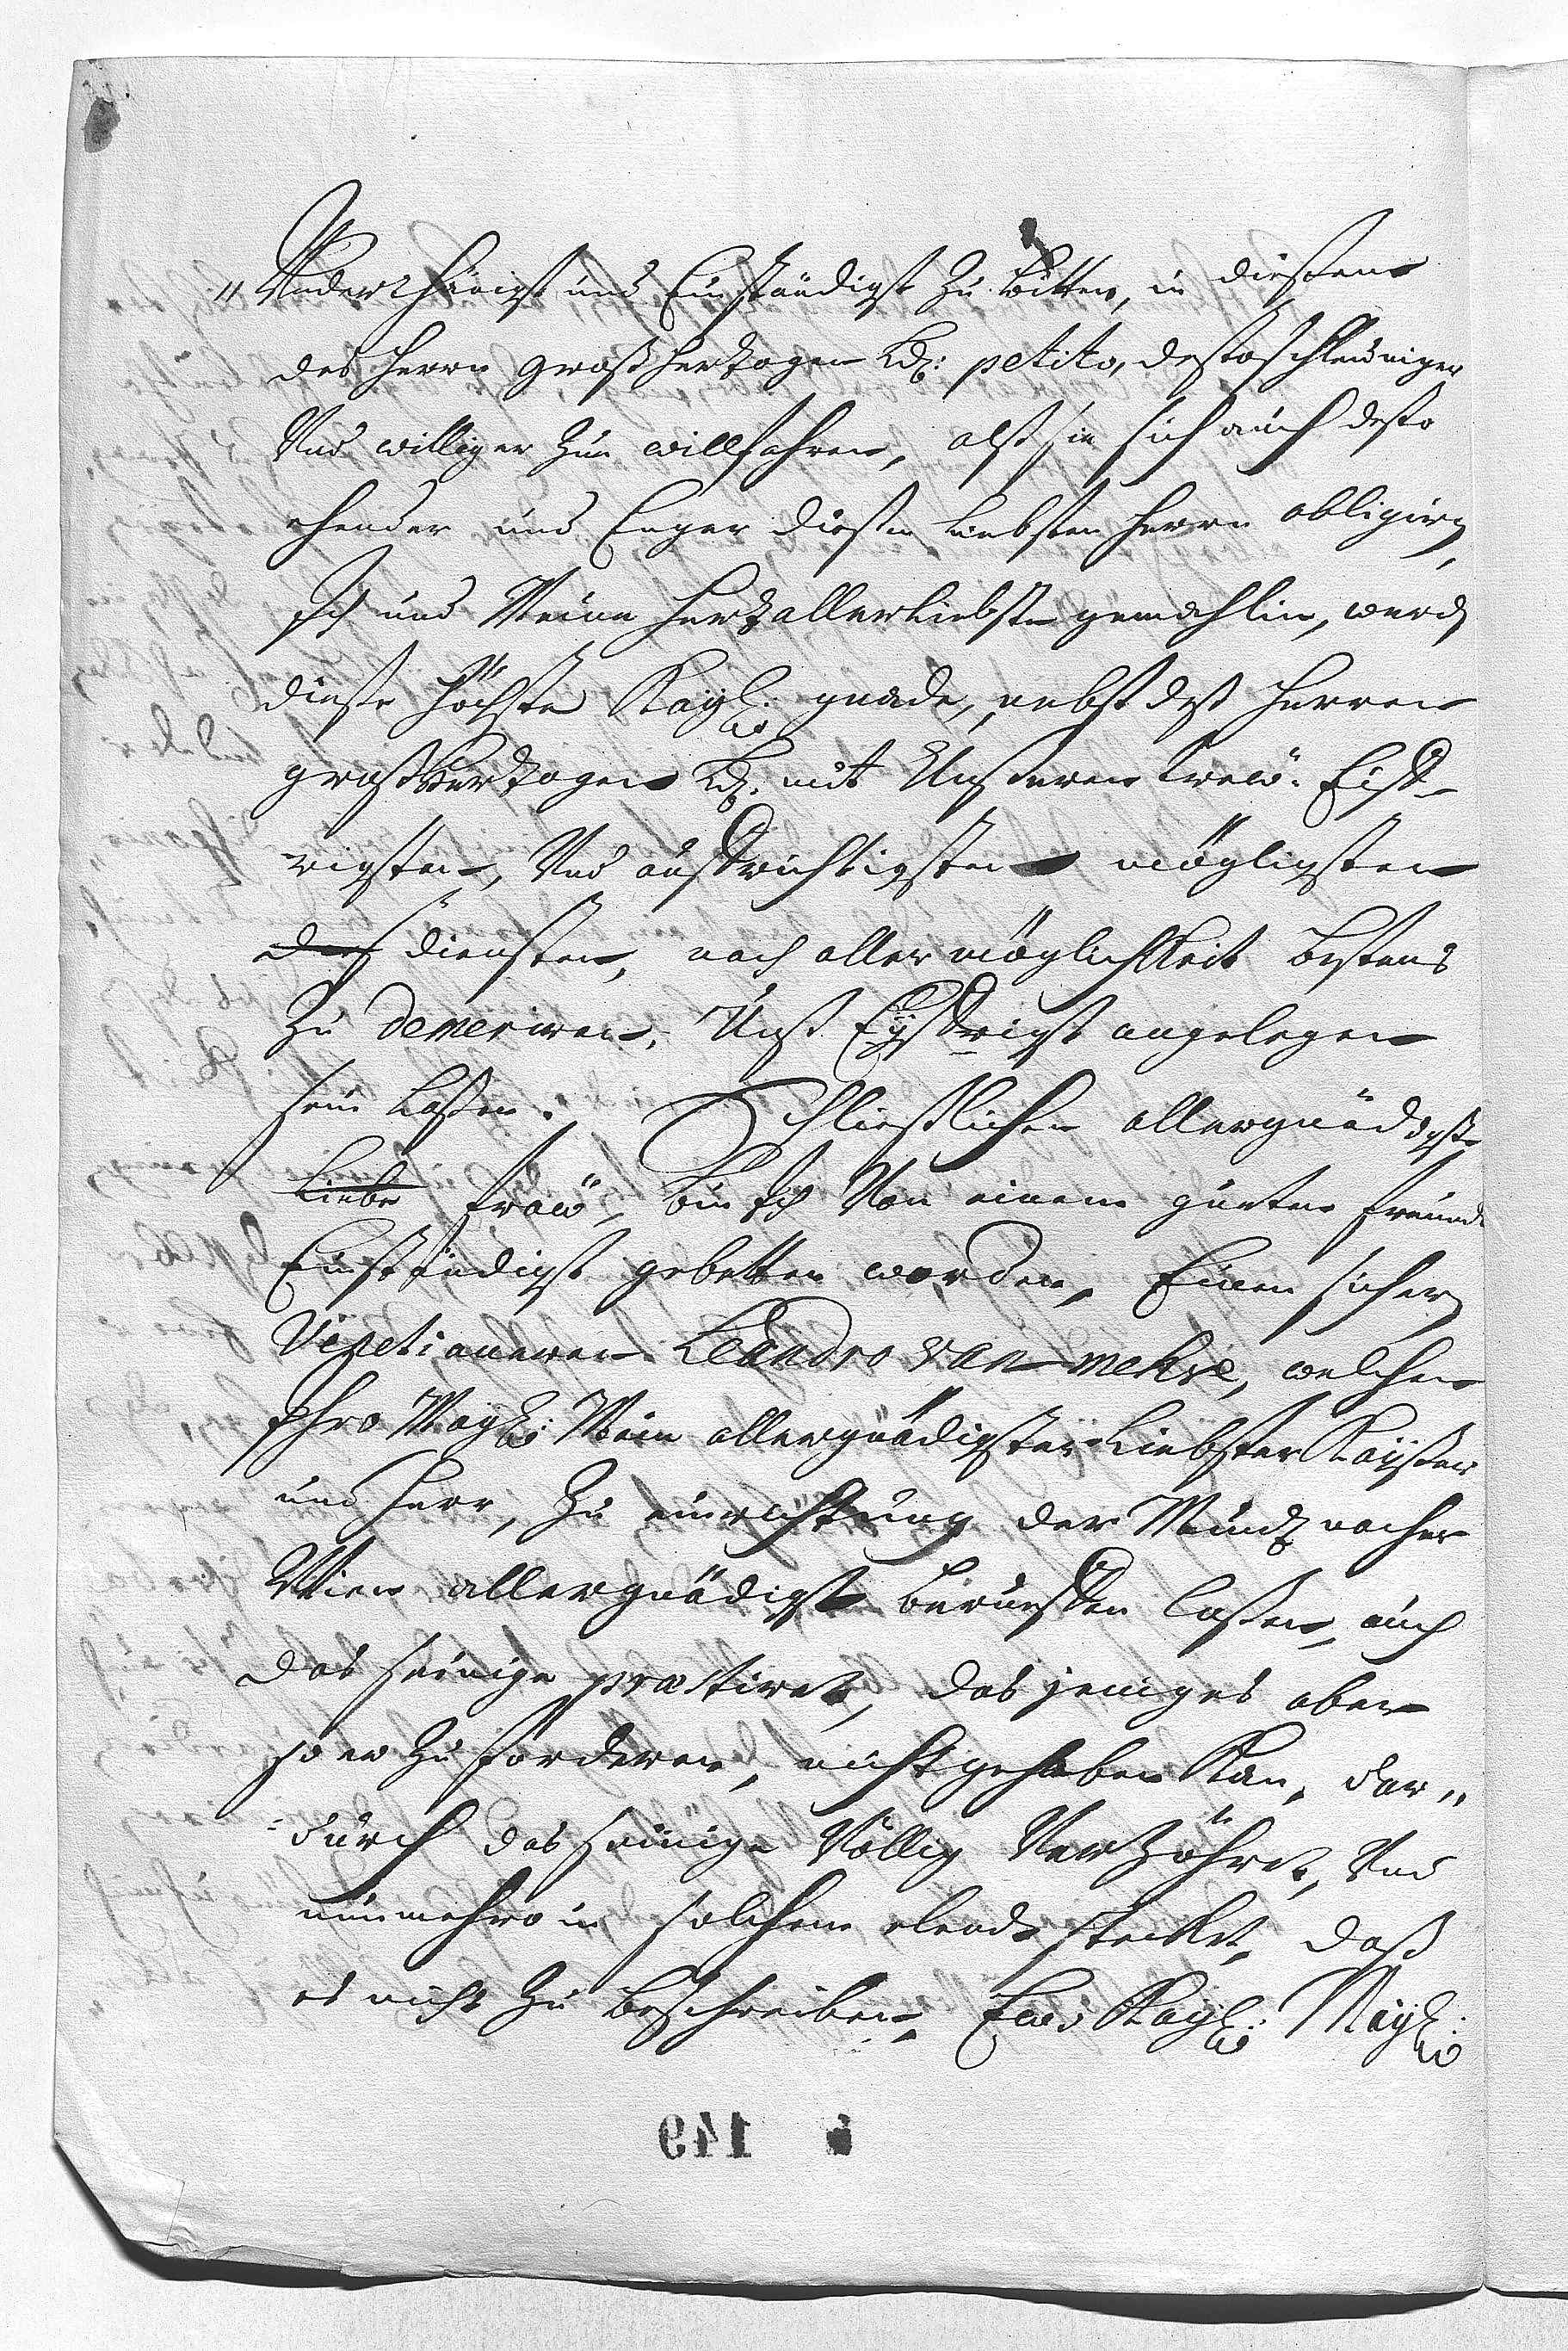 "Underthänigst und Einständigst zu bitten, in dießem
des Herrn großhertzogen Ld: petito, desto schleuniger
Und williger zu willfahren, alß sie sich auch desto
ehender und Enger dießen liebsten Herrn obligiren,
Ich und Meine Hertzallerliebste gemahlin, werden
dieße höchste Kayl: gnade, nebst deß Herren
großhertzogen Ld: mit Unßeren trew: Eiff-
rigsten, Und auffrichtigsten mögligsten
diensten, nach aller möglichkeit bestens
zu demeriren, Unß Eyffrigst angelegen
sein laßen. Schließlichen allergnädigste
Liebe fraw, bin Ich Von einem gueten freundt
Einständigst gebetten worden, Einen sichern
Venetianeren Leandro van mekre, welchen
Ihro Mayl: Mein allergnädigster Liebster Kayßer
und Herr, zu einrichtung der Müntz nacher
Wien allergnädigst beruffen laßen, auch
das seinige præstiret, das jeniges aber
so er zu forderen, nicht gehaben kan, dar"
=durch das seinige Völlig Verzöhret, Und
nunmehro in solchem elendt stecket, daß
es nicht zu beschreiben, Ew: Kayl: Mayl:
149